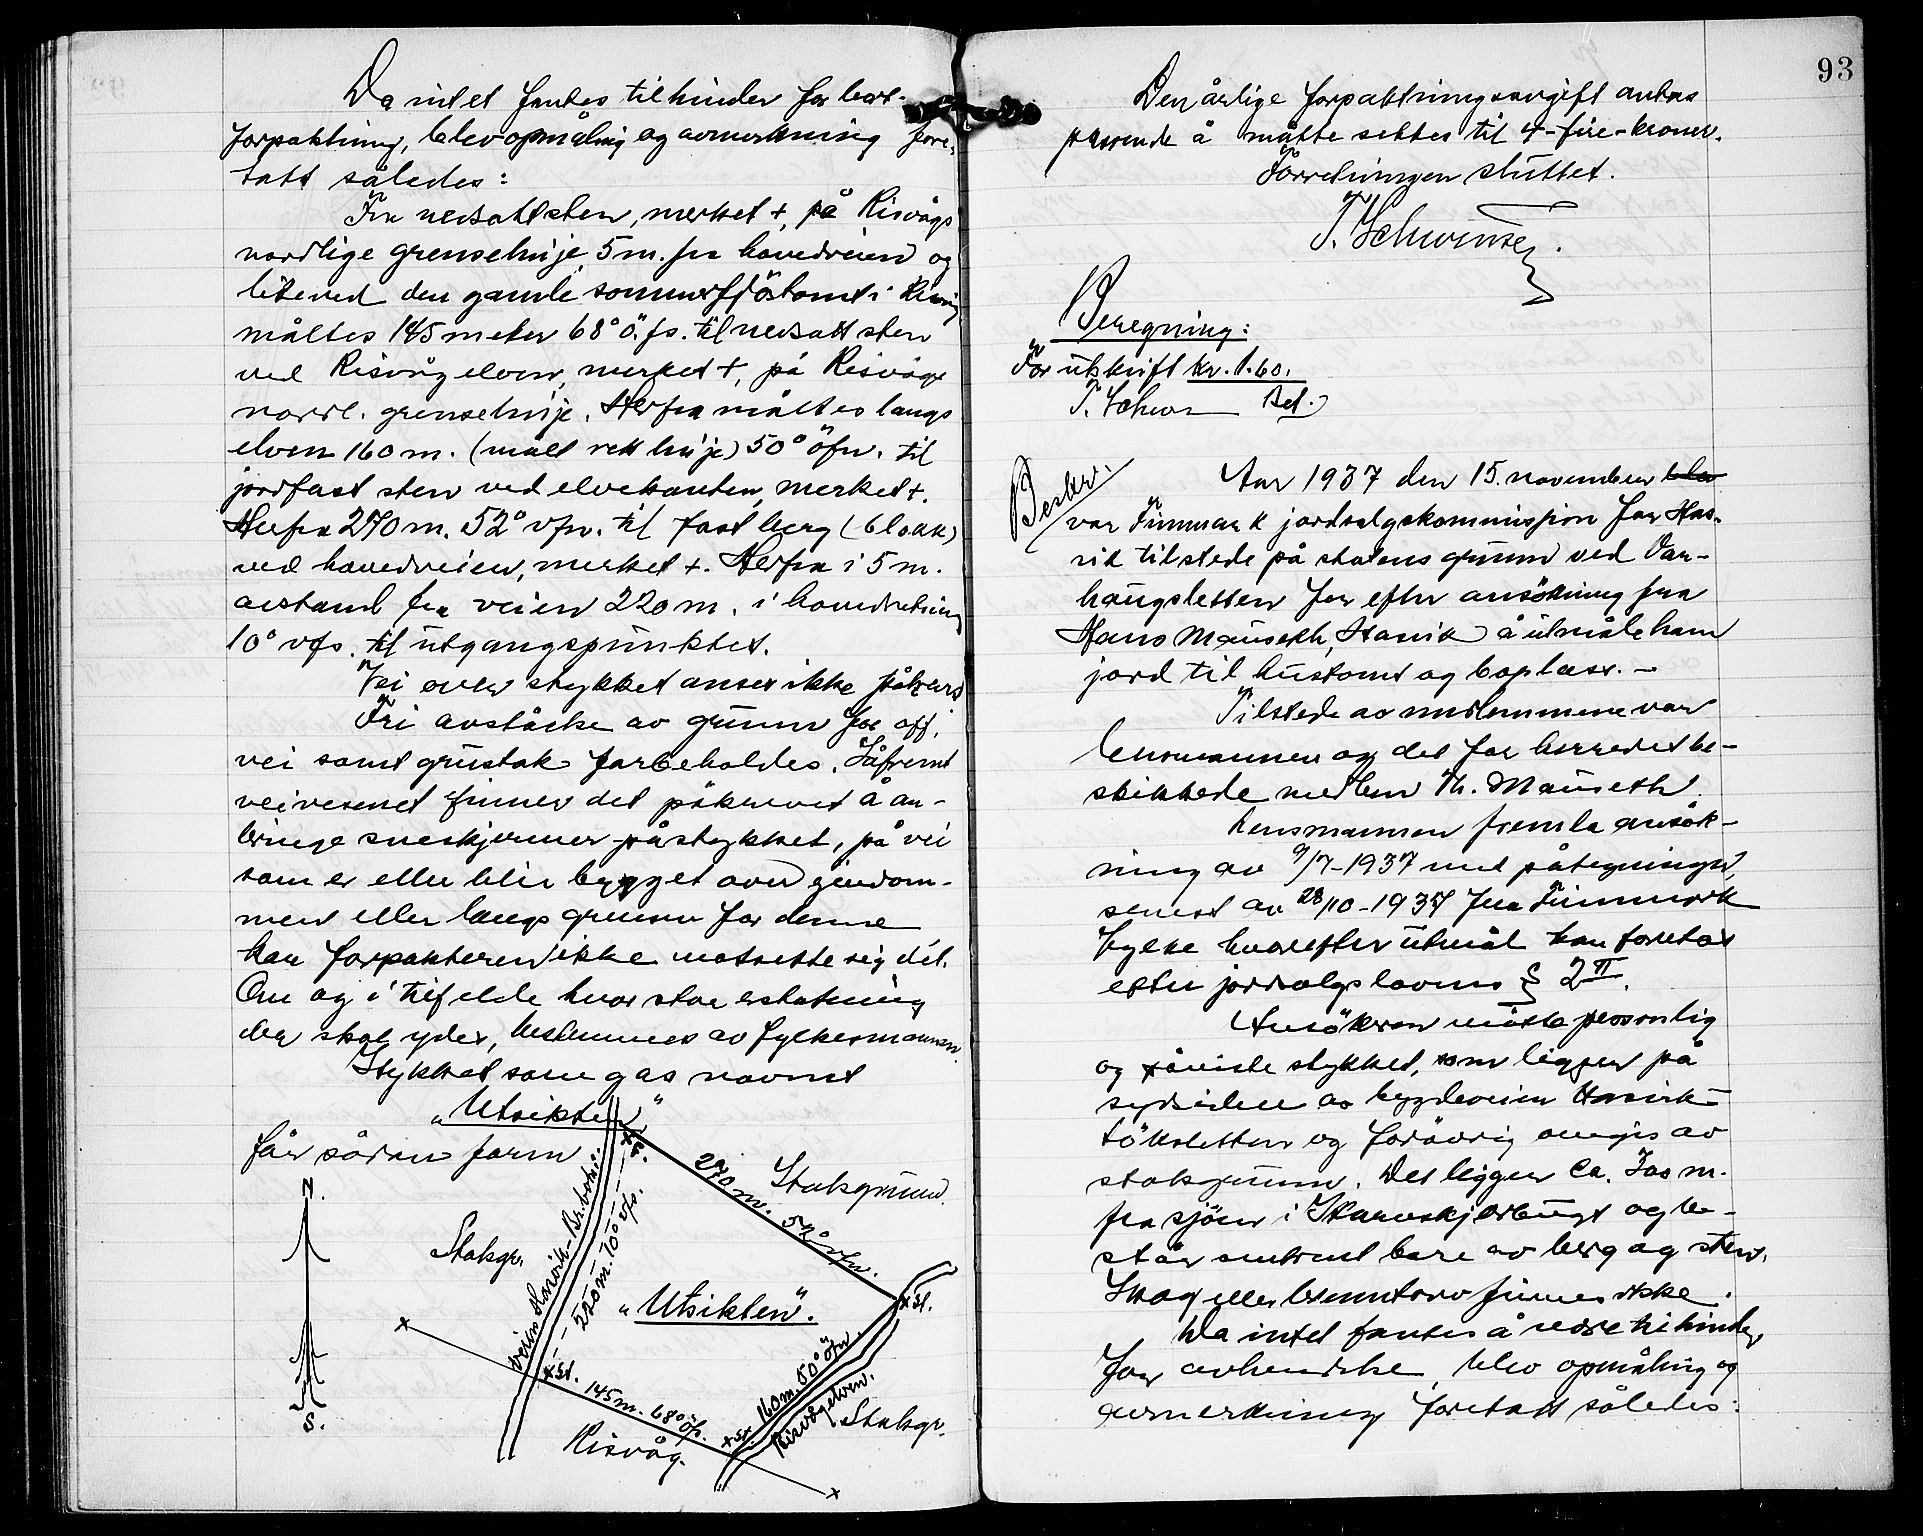 Da intet fantes tilhinder for bort-
forpaktning, blev opmåling og avmerkning fore-
tatt således:
Fra nedsatt sten, merket +, på Risvågs
nordlige grenselinje, 5 m. fra hovedveien og
like ved den gamle sommerfjöstomt i
måltes 145 meter 68° ö.f.s. til nedsatt sten
ved Risvågelven, merket +, på Risvågs
nordl. grenselinje. Herfra måltes langs
elven 160 m. (målt rett linje) 50° öfn. til
jordfast sten ved elvekanten, merket +.
Herfra 270 m. 52° vfn. til fast berg (blokk)
ved hovedveien, merket +. Herfra i 5 m.
avstand fra veien 220 m. i hovedretning
10° vfs. til utgangspunktet.
Vei over stykket anses ikke påkrevd
Fri avståelse av grunn for off.
vei samt grustak forbeholdes. Såfremt
veivesenet finner det påkrevet å an-
bringe sneskjermer på stykket, på vei
som er eller blir bygget over eiendom-
men eller langs grensen for denne
kan forpakteren ikke motsette sig det.
Om og i tilfelde hvor stor erstatning
der skal ydes, bestemmes av fylkesmannen.
Stykket som gas navnet
"Utsikten"
får sådan form
N.
S.
Statsgr.
Statsgrunn.
270 m. 52° vfn.
220 m. 10° vfs.
"Utsikten".
+ st.
+ st. 145 m. 68° öfs.
+ st. 160 m. 50° öfn.
Risvågelven.
Statsgr.
Risvåg.
93
Den årlige forpaktningsavgift antas
passende å måtte settes til 4-fire-kroner.
Forretningen sluttet.
Beregning:
For utskrift kr. 1.60.
Aar 1937 den 15. november blev
var Finnmark jordsalgskommissjon for Has-
vik tilstede på statens grunn ved Var-
haugsletten for efter ansökning fra
Hans Mauseth, Hasvik å utmåle ham
jord til hustomt og boplass. -
Tilstede av medlemmene var
lensmannen og det for herredet be-
skikkede medlem Th. Mauseth.
Lensmannen fremla ansök-
ning av 9/7-1937 med påtegninger,
senest av 28/10-1937 fra Finnmark
fylke hvorefter utmål kan foretas
efter jordsalgslovens § 2 II.
Ansökeren mötte personlig
og påviste stykket, som ligger på
sydsiden av bygdeveien Hasvik-
sletten og forövrig omgis av
statsgrunn. Det ligger ca. m.
fra sjöen i og be-
står omtrent bare av berg og sten.
Skog eller brenntorv finnes ikke.
Da intet fantes å være til hinder
for avhendelse, blev opmåling og
avmerkning foretatt således: